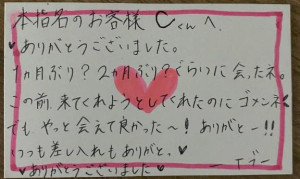 本指名のお客様 Cくんへ
♥ありがとうございました。
1ヵ月ぶり?2ヵ月ぶり?ぐらいに会ったネ。
この前、来てくれようとしてくれたのにゴメンネ
でも、やっと会えて良かった〜!ありがと〜!!
いつも差し入れもありがと。♥
♥ありがとうございました♥